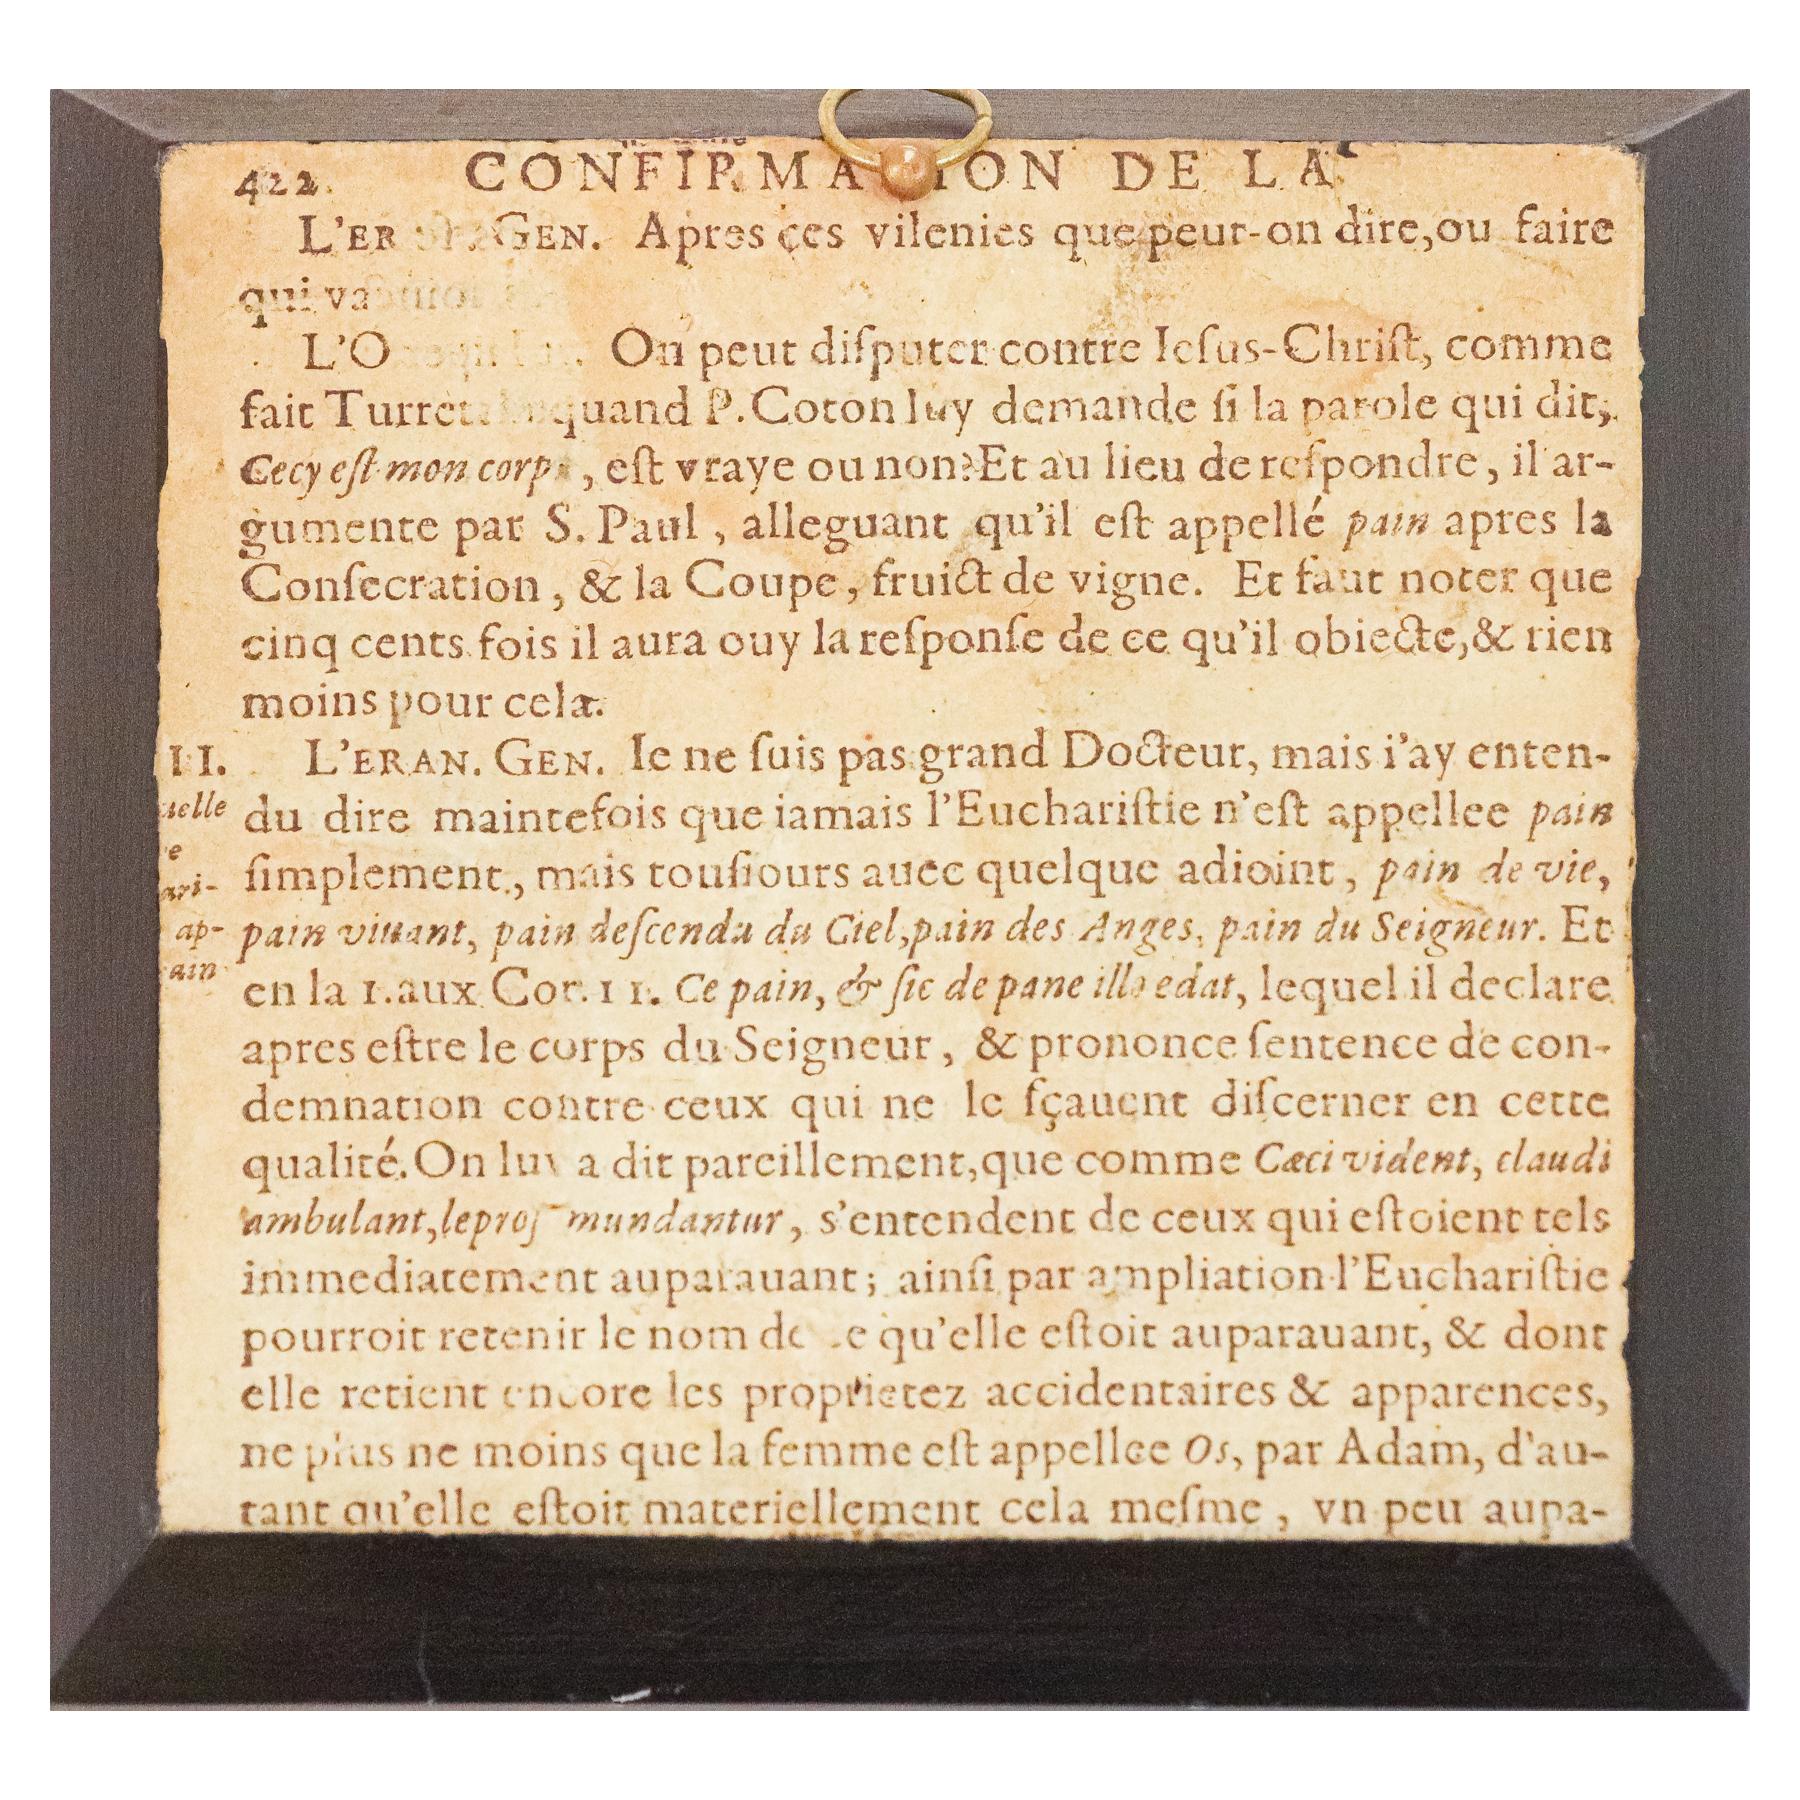 422. CONFIRMATION DE LA
L'ER GEN. Apres ces vilenies que peut-on dire,ou faire
qui
L'O On peut diſputer contre Ieſus-Chriſt, comme
fait quand P. Coton luy demande ſi la parole qui dit,
Cecy eſt mon corps, eſt vraye ou non? Et au lieu de reſpondre, il ar-
gumente par S. Paul, alleguant qu'il eſt appellé pain apres la
Conſecration, & la Coupe, fruict de vigne. Et faut noter que
cinq cents fois il aura ouy la reſponſe de ce qu'il obiecte,& rien
moins pour cela.
II. L'ERAN. GEN. Ie ne ſuis pas grand Docteur, mais i'ay enten-
uelle du dire maintefois que iamais l'Euchariſtie n'eſt appellee pain
e
ari- ſimplement, mais touſiours auec quelque adioint, pain de vie,
ap- pain viuant, pain deſcendu du Ciel, pain des Anges, pain du Seigneur. Et
ain en la 1. aux Cor. 11. Ce pain, & ſic de pane illo edat, lequel il declare
apres eſtre le corps du Seigneur, & prononce ſentence de con-
demnation contre ceux qui ne le ſçauent diſcerner en cette
qualité. On luy a dit pareillement, que comme Cæci vident, claudi
ambulant, leproſ mundantur, s'entendent de ceux qui eſtoient tels
immediatement auparauant; ainſi par ampliation l'Euchariſtie
pourroit retenir le nom de ce qu'elle eſtoit auparauant, & dont
elle retient encore les proprietez accidentaires & apparences,
ne plus ne moins que la femme eſt appellee Os, par Adam, d'au-
tant qu'elle eſtoit materiellement cela meſme, vn peu aupa-